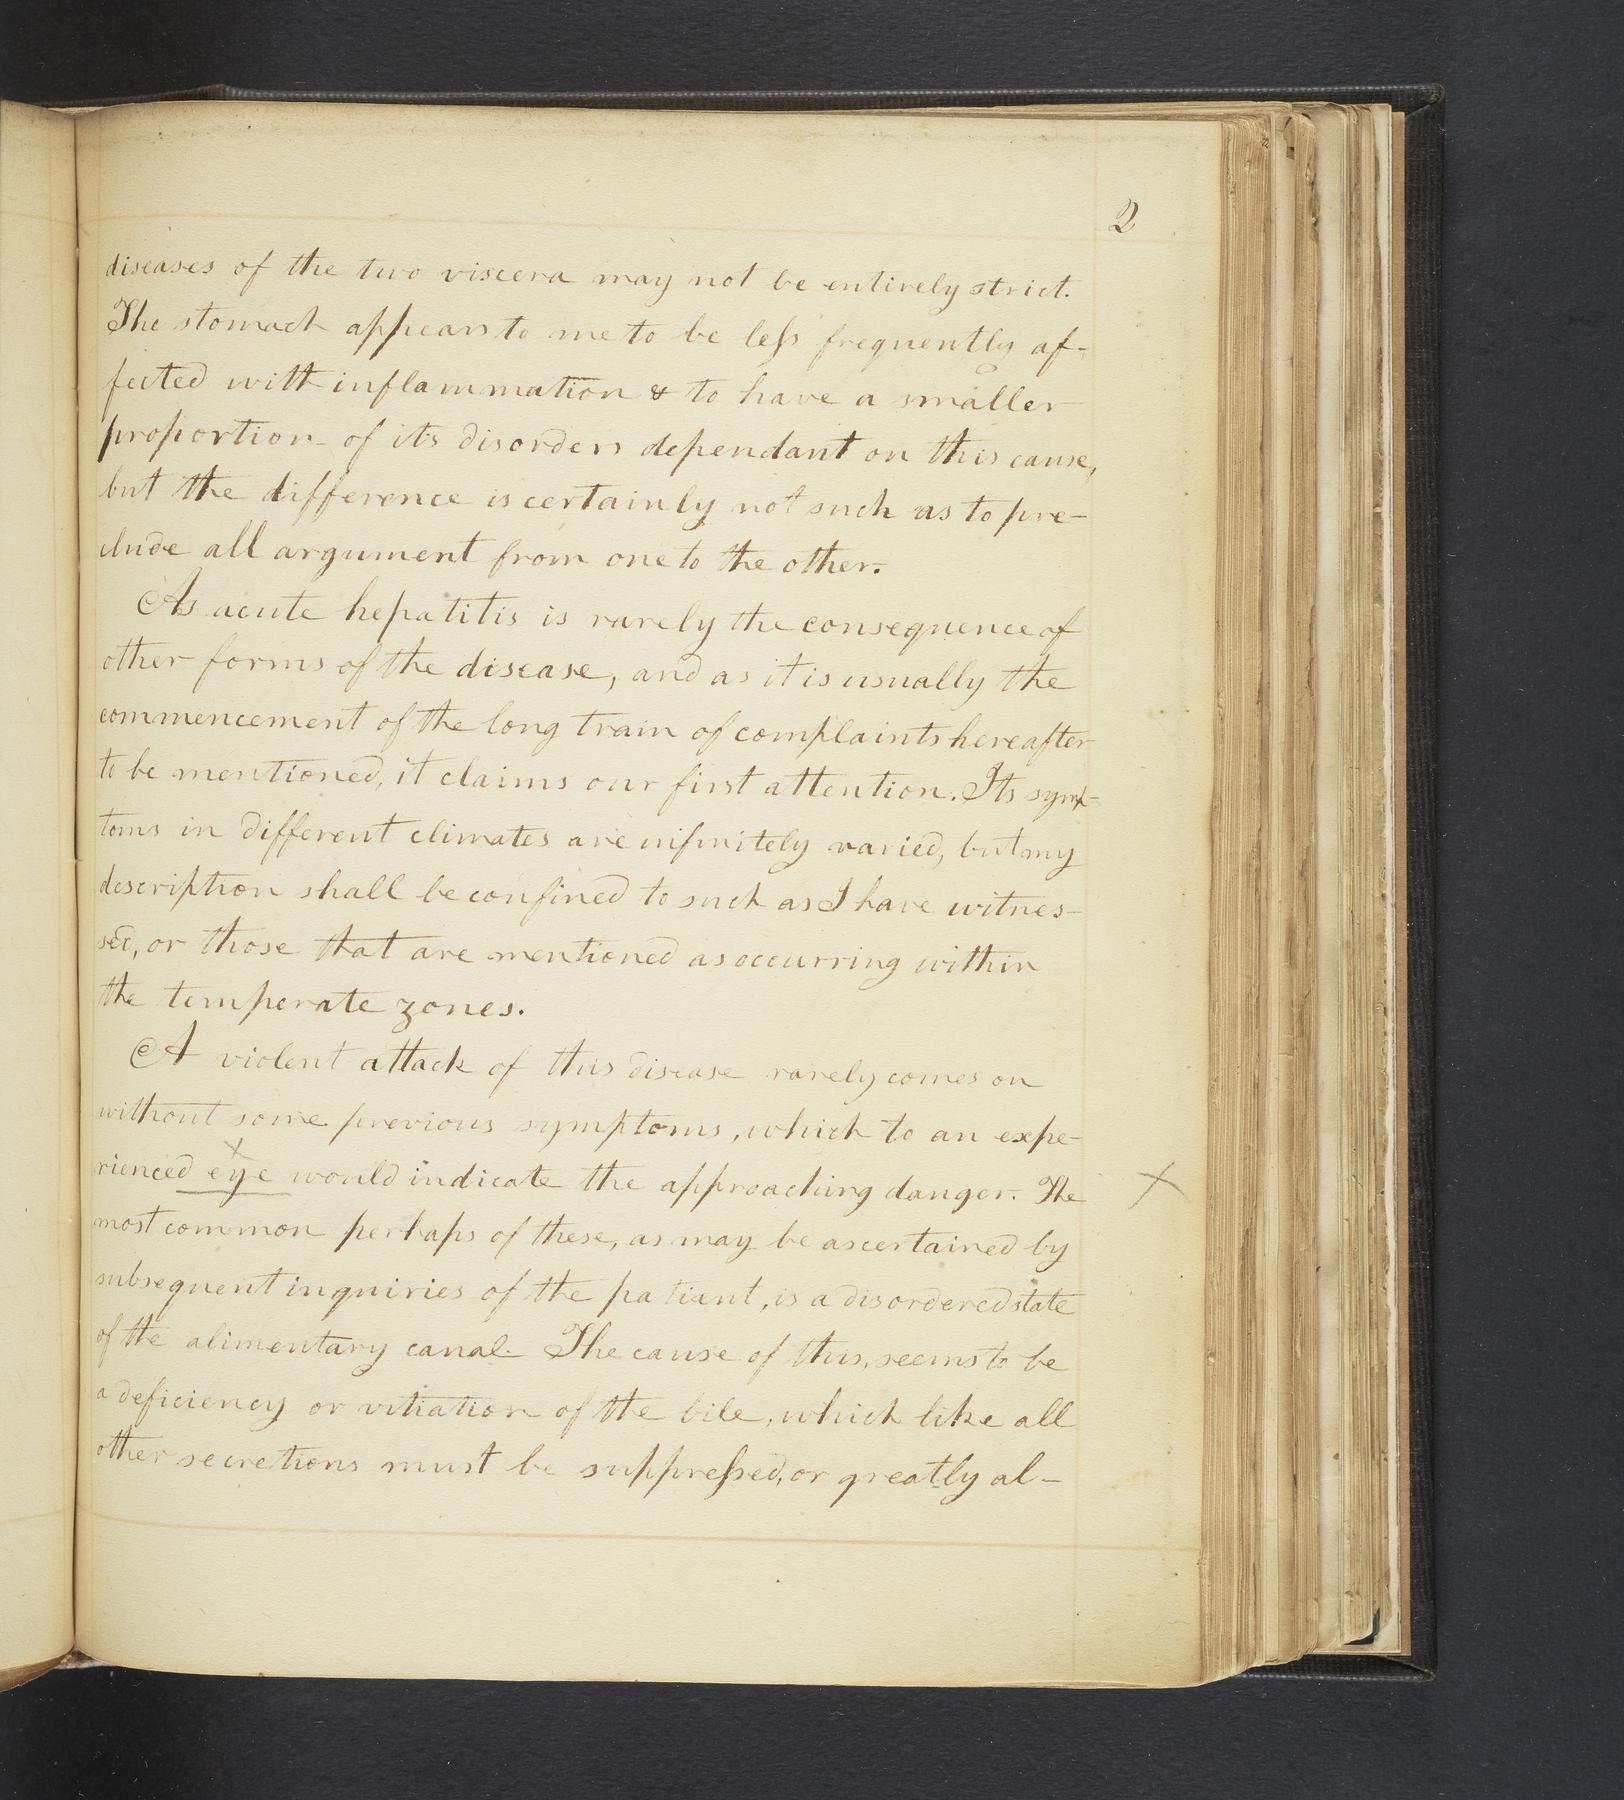 2
diseases of the two viscera may not be entirely strict.
The stomach appears to me to be leſs frequently af-
fected with inflammation & to have a smaller
proportion of its disorders dependant on this cause,
but the difference is certainly not such as to pre-
clude all argument from one to the other.
As acute hepatitis is rarely the consequence of
other forms of the disease, and as it is usually the
commencement of the long train of complaints hereafter
to be mentioned, it claims our first attention. Its symp-
toms in different climates are infinitely varied, but my
description shall be confined to such as I have witnes-
sed, or those that are mentioned as occurring within
the temperate zones.
A violent attack of this disease rarely comes on
without some previous symptoms, which to an expe-
rienced eye would indicate the approaching danger. The
most common perhaps of these, as may be ascertained by
subsequent inquiries of the patient, is a disordered state
of the alimentary canal. The cause of this, seems to be
a deficiency or vitiation of the bile, which like all
other secretions must be suppreſsed, or greatly al-